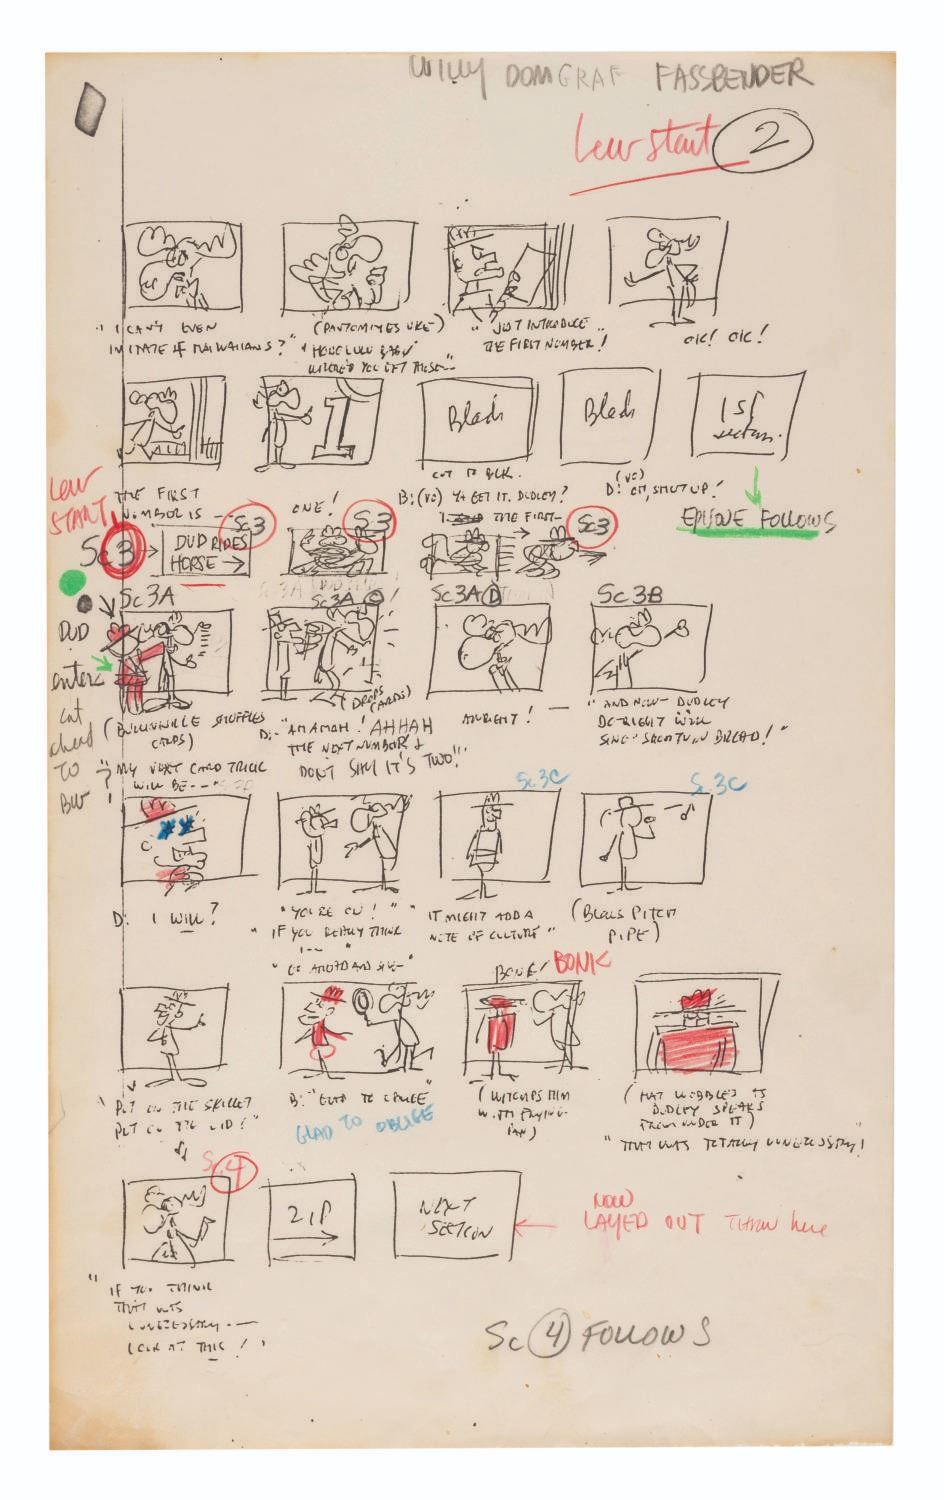 WILLY DOMGRAF FASSBENDER
Lew start 2
"I CAN'T EVEN
IMITATE HAWAIIANS?"
(PANTOMIMES UKE)
"HONOLULU BABY
WHERE'D YOU GET THOSE--"
"JUST INTRODUCE
THE FIRST NUMBER!"
OK! OK!
THE FIRST
NUMBER IS ---
1
ONE!
Black
CUT TO BLK.
B: (VO) YA GET IT, DUDLEY?
THE FIRST-
Black
(VO)
D: OH, SHUT UP!
1ST
section
EPISODE FOLLOWS
Lew
START
Sc 3
DUD RIDES
HORSE
Sc 3
Sc 3
Sc 3
Sc 3A
Sc 3A C
Sc 3A D
Sc 3B
DUD
enters
cut
ahead
TO
BW
(BULLWINKLE SHUFFLES
CARDS)
"MY NEXT CARD TRICK
WILL BE---"
(DROPS
CARDS)
D:- "AHAHAH! AHHAH
THE NEXT NUMBER &
DON'T SAY IT'S TWO!"
ALRIGHT! —
"AND NOW- DUDLEY
DO-RIGHT WILL
SING "SHORTNIN BREAD!"
Sc 3C
Sc 3C
D: I WILL?
"YOU'RE ON!"
"IF YOU REALLY THINK
I--"
"GO AHEAD AND
"IT MIGHT ADD A
NOTE OF CULTURE"
(BLOWS PITCH
PIPE)
"PUT ON THE SKILLET
PUT ON THE LID!"
B: "GLAD TO OBLIGE"
GLAD TO OBLIGE
BONK! BONK
(WHOMPS HIM
WITH FRYING-
PAN)
(HAT WOBBLES AS
DUDLEY SPEAKS
FROM UNDER IT)
"THAT WAS TOTALLY UNNECESSARY!
Sc 4
"IF YOU THINK
THAT WAS
UNNECESSARY.—
LOOK AT THIS!"
ZIP
NEXT
SECTION
NOW
LAYED OUT THROU here
Sc 4 FOLLOWS